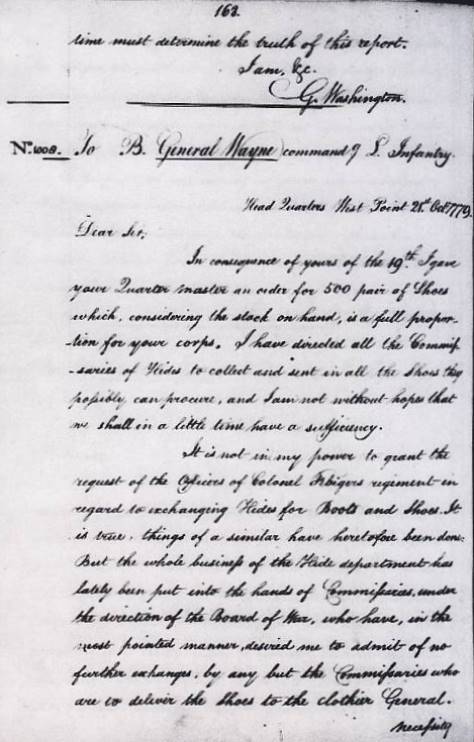 163.
time must determine the truth of this report.
I am, &c.
G. Washington.
No. 1008. To B. General Wayne command'g L. Infantry.
Head Quarters West Point 21st Oct 1779.
Dear Sir,
In consequence of yours of the 19th. I gave
your Quarter master an order for 500 pair of Shoes
which, considering the stock on hand, is a full propor-
-tion for your corps. I have directed all the Commis-
-saries of Hides to collect and sent in all the Shoes they
possibly can procure, and I am not without hopes that
we shall in a little time have a sufficiency.
It is not in my power to grant the
request of the Officers of Colonel Febigers regiment in
regard to exchanging Hides for Boots and Shoes. It
is true, things of a similar have heretofore been done.
But the whole business of the Hide department has
lately been put into the hands of Commissaries, under
the direction of the Board of War, who have, in the
most pointed manner, desired me to admit of no
further exhanges, by any but the Commissaries who
are to deliver the Shoes to the clothier General.
necessity